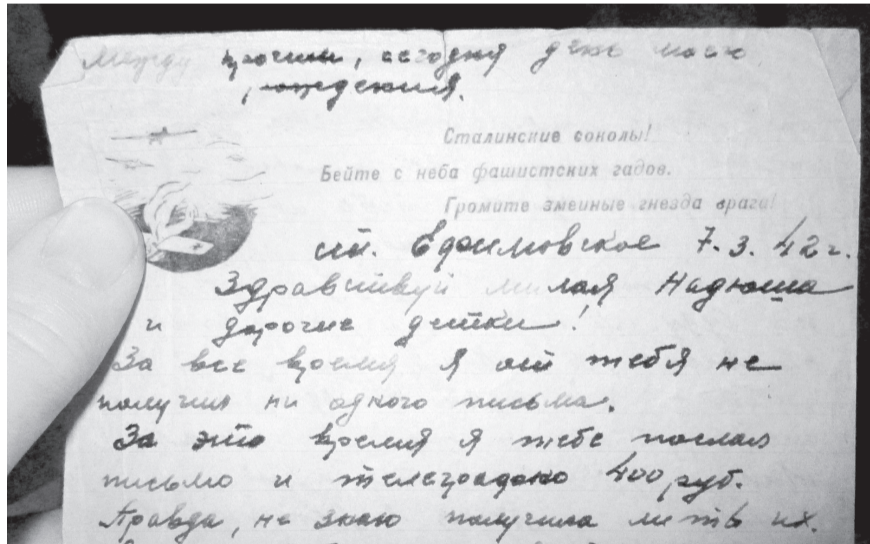 Между прочим, сегодня день моего
рождения.
Сталинские соколы!
Бейте с неба фашистских гадов.
Громите змеиные гнезда врага!
ст. Ефимовское 7.3.42г.
Здравствуй милая Надюша
и дорогие детки!
За все время я от тебя не
получил ни одного письма.
За это время я тебе послал
письмо и телеграфою 400 руб.
Правда, не знаю получила ли ты их.